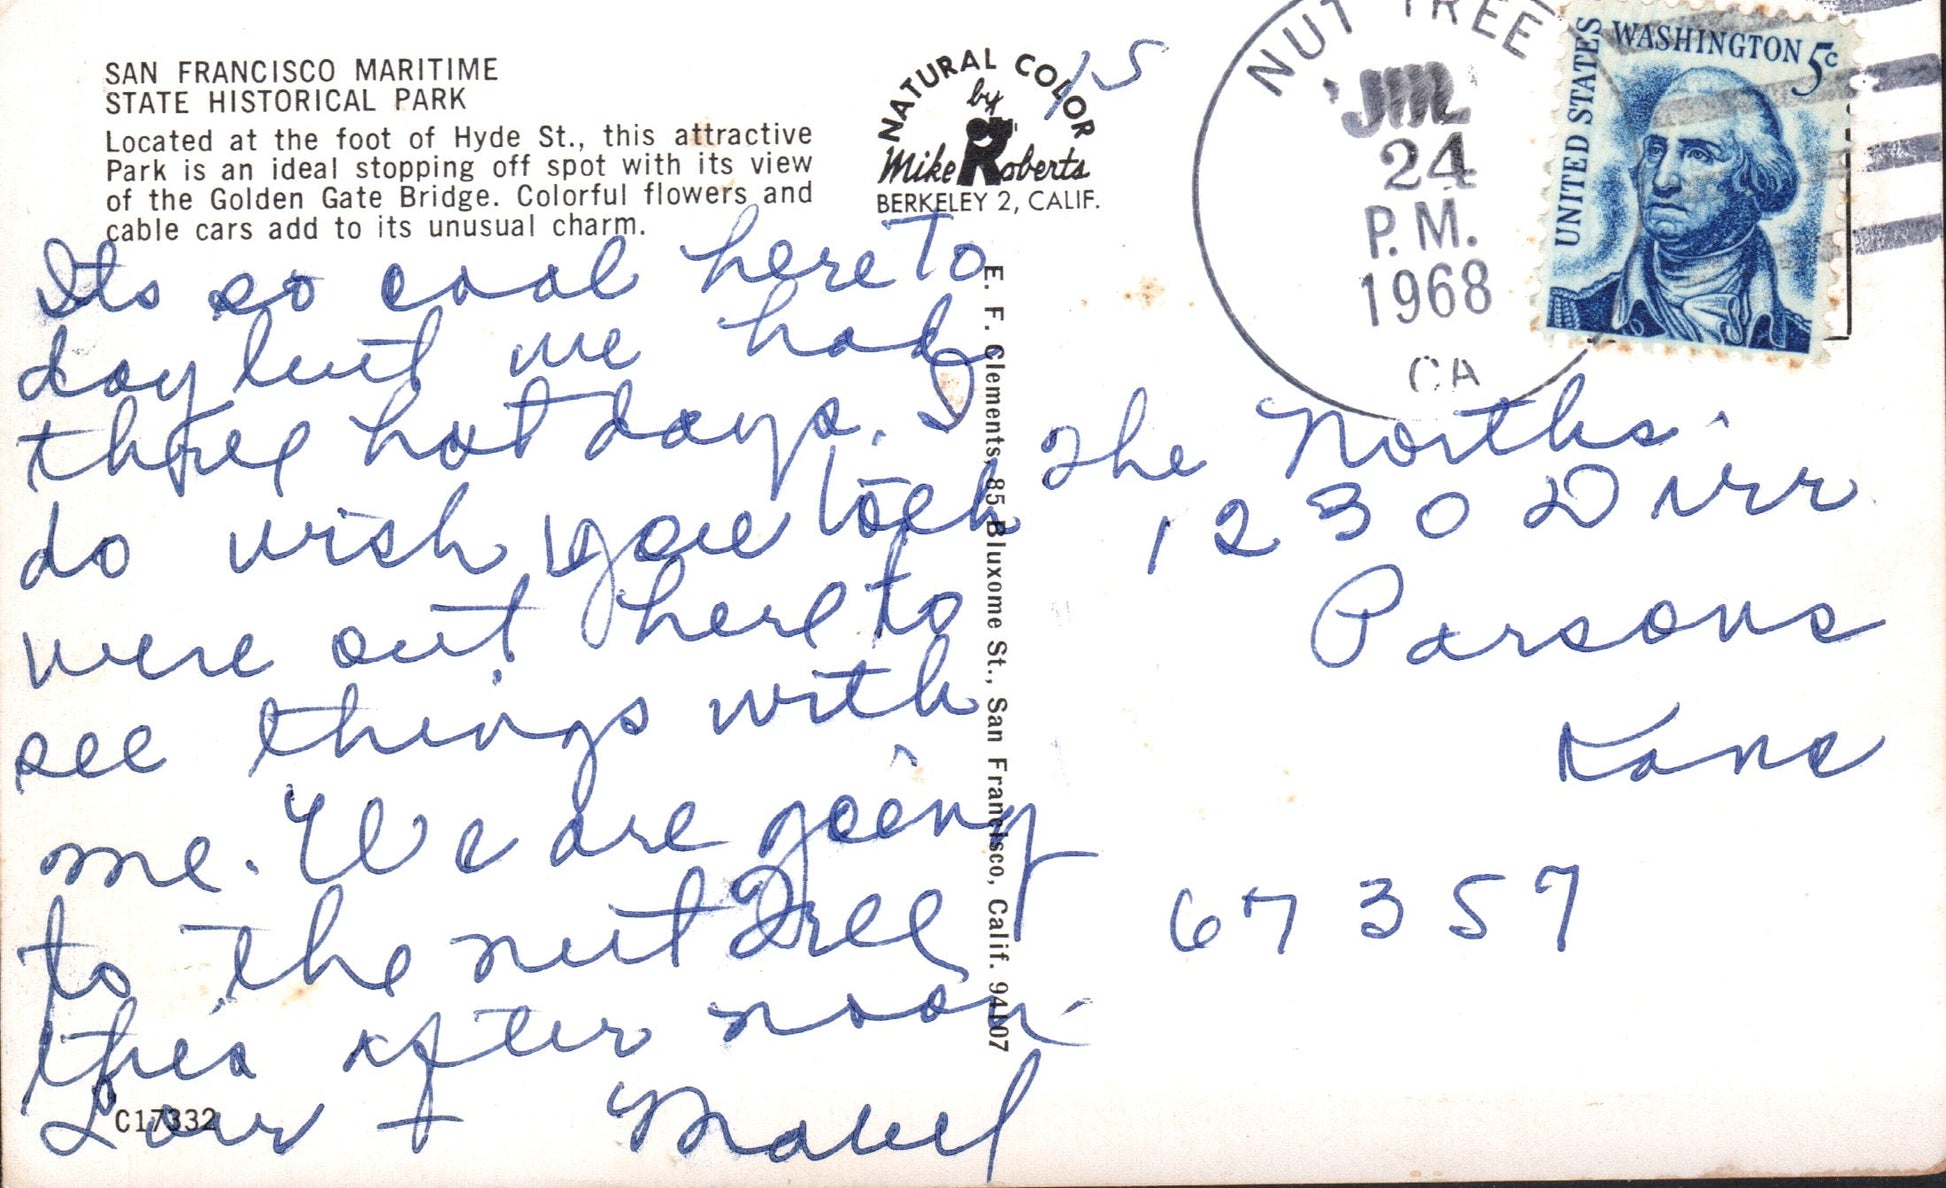 SAN FRANCISCO MARITIME
STATE HISTORICAL PARK
Located at the foot of Hyde St., this attractive
Park is an ideal stopping off spot with its view
of the Golden Gate Bridge. Colorful flowers and
cable cars add to its unusual charm.
NATURAL COLOR
by
Mike Roberts
BERKELEY 2, CALIF.
15
NUT TREE
JUL
24
P.M.
1968
CA
UNITED STATES
WASHINGTON 5c
Its so cool here To
day but we had
three hot days. I
do wish you
were out here to
see things with
me. We are going
to the nut Tree
this after noon.
+ Mabel
C17332
E. F. Clements, 85 Bluxome St., San Francisco, Calif. 94107
The Norths.
1230 Dirr
Parsons
Kans
67357